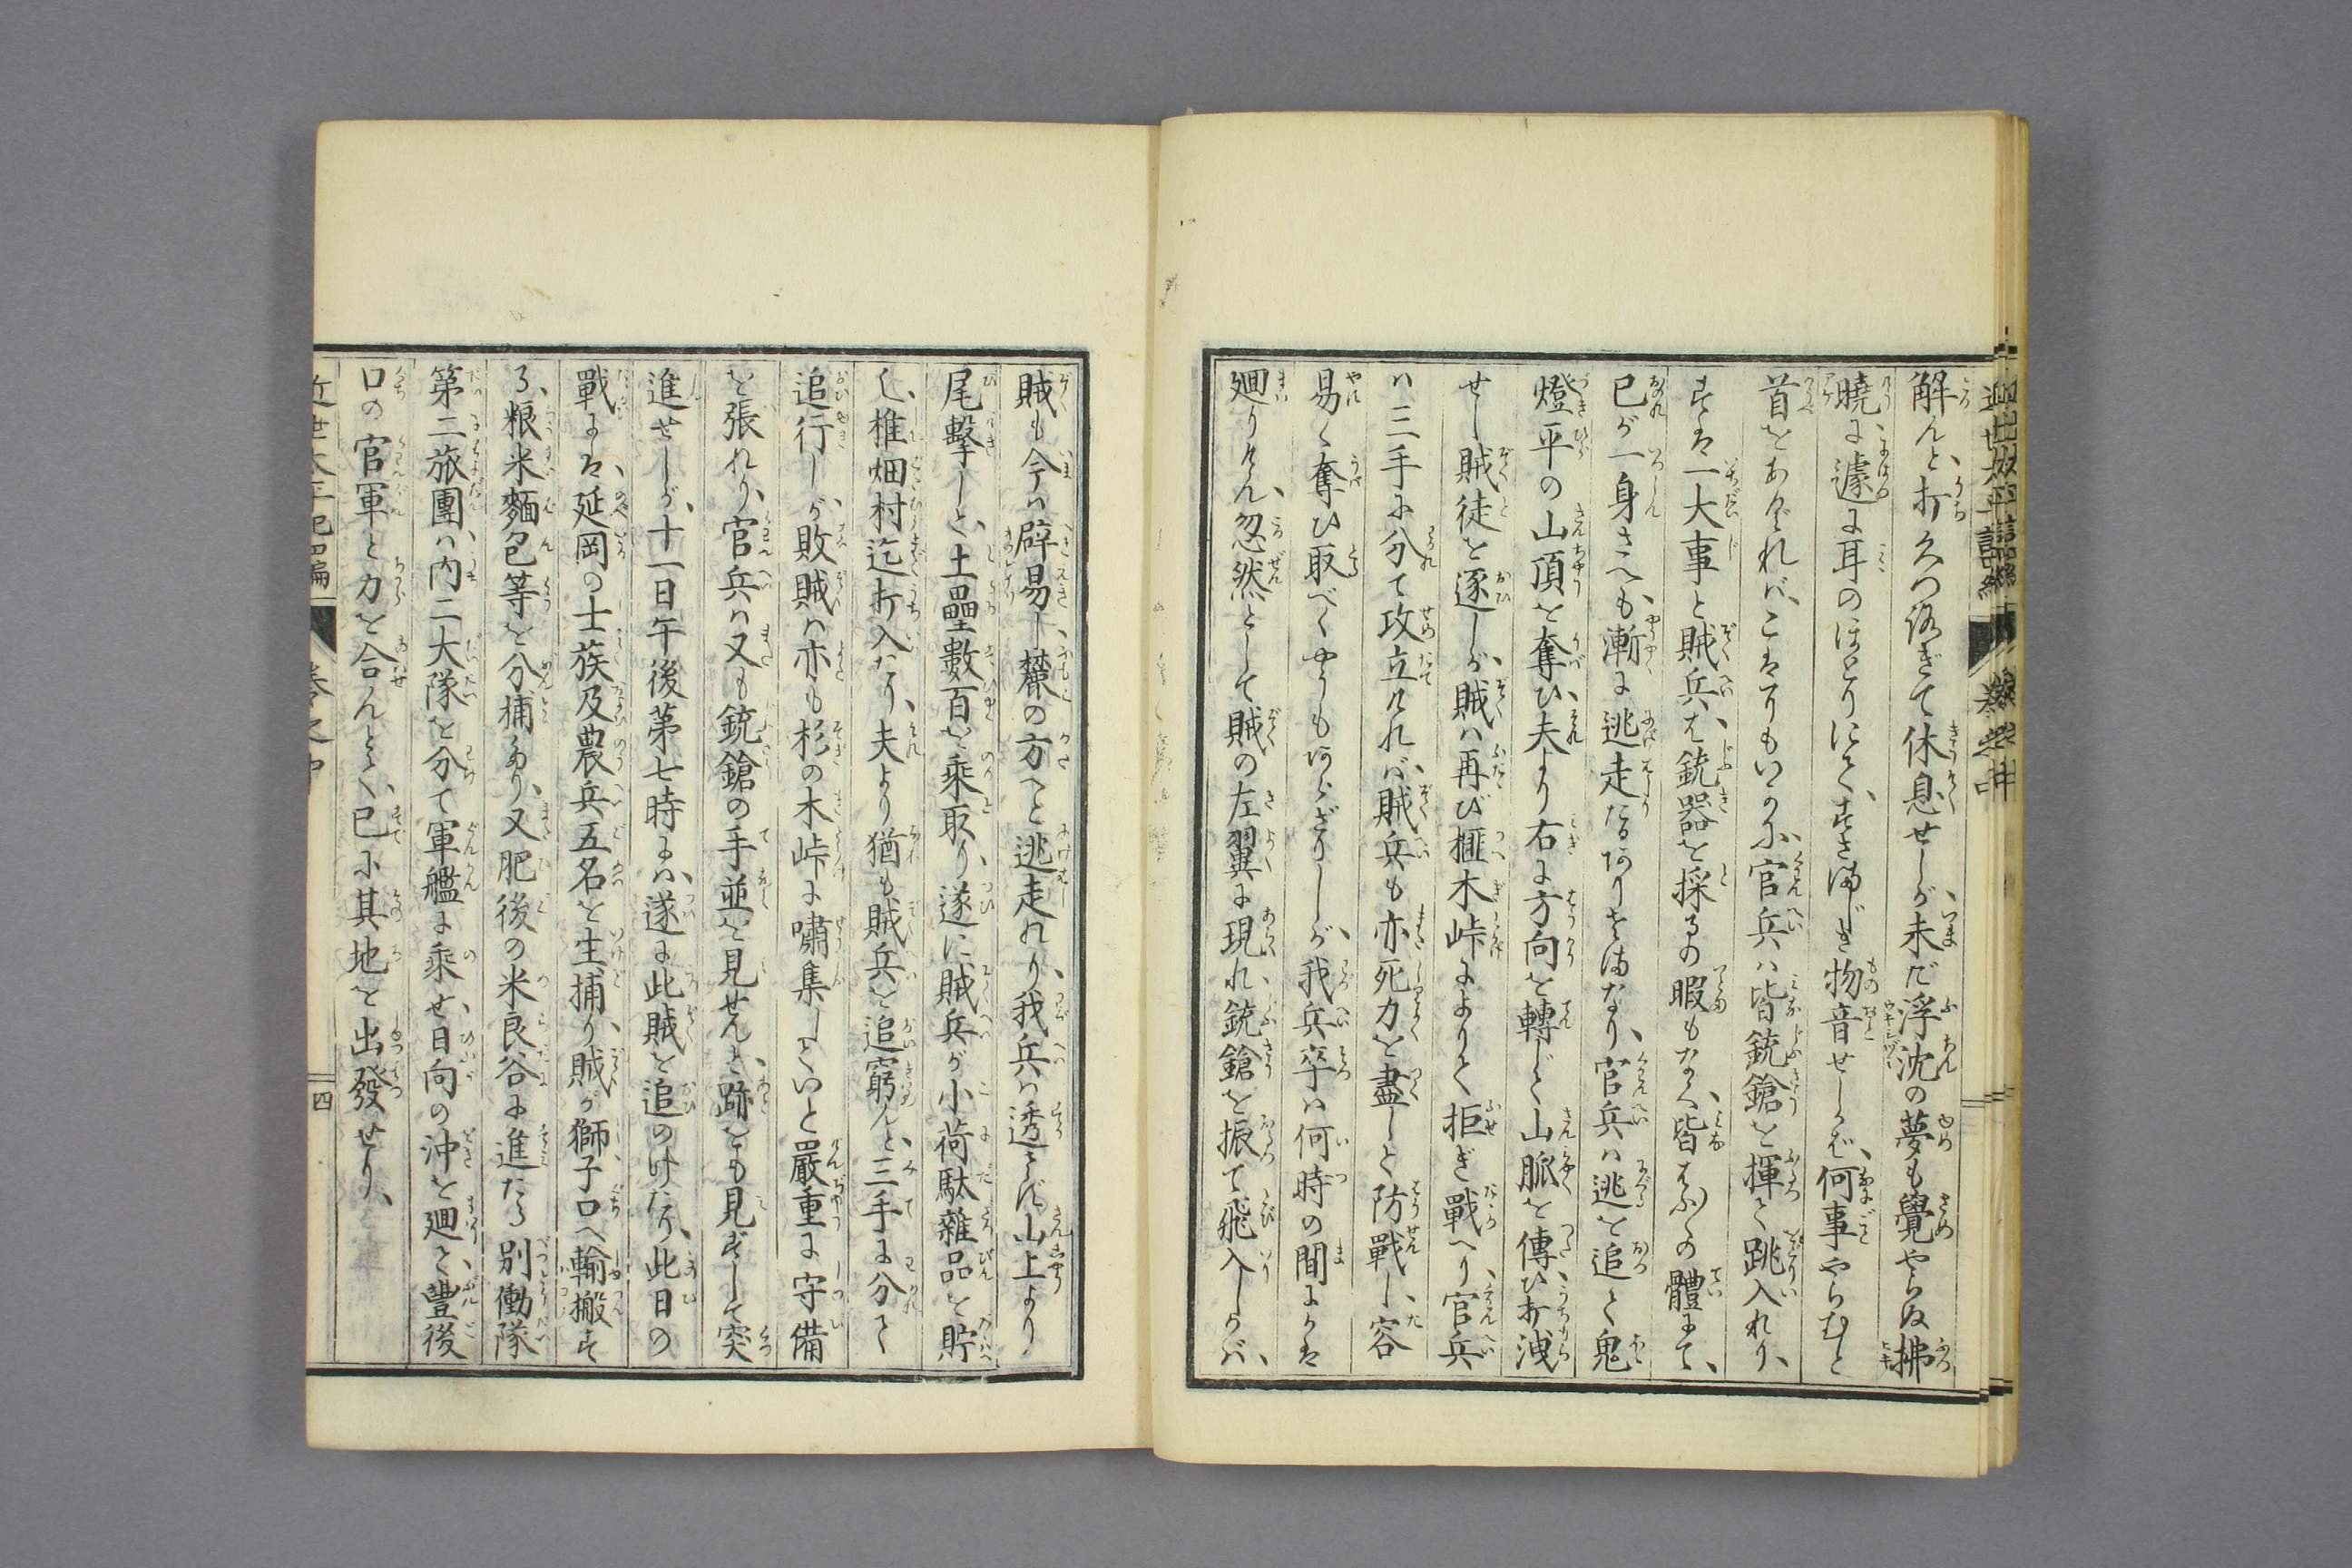 解んと、打久つ泓ぎて休息せしが、未だ浮沈の夢も覺やらぬ拂
曉に遽に耳のほとりにて、すさまじき物音せしかば、何事やらむと
首をあぐれバ、こはそもいかに、官兵ハ皆銃鎗を揮て跳入れり、
すは一大事と賊兵は、銃器を採るの暇もなく、皆はふ〳〵の體にて、
已が一身さへも、漸に逃走たるありさまなり、官兵ハ逃を追て鬼
燈平の山頂を奪ひ、夫より右に方向を轉じて山脈を傳ひ、打洩
せし賊徒を逐しが、賊ハ再び榧木峠によりて拒ぎ戰へり、官兵
ハ三手に分て攻立けれバ、賊兵も亦死力を盡して防戰し、容
易く奪ひ取べくやうもあらざりしが、我兵卒ハ何時の間にかは
廻りけん、忽然として賊の左翼に現れ、銃鎗を振て飛入しかバ、
賊も今ハ辟易し、麓の方へと逃走れり、我兵ハ透さず山上より
尾擊して、土壘數百を乘取り、遂に賊兵が小荷駄雜品を貯へ
し、椎畑村迄打入たり、夫より猶も賊兵を追窮んと、三手に分て
追行しが、敗賊ハ亦も杉の木峠に嘯集していと嚴重に守備
を張れり、官兵ハ又も銃鎗の手並を見せんと、跡をも見ずして突
進せしが、十一日午後第七時にハ、遂に此賊を追のけたり、此日の
戰には、延岡の士族及農兵五名を生捕り、賊が獅子口へ輸搬す
る、粮米麵包等を分捕あり、又肥後の米良谷に進たる別働隊
第二旅團ハ、内二大隊を分て軍艦に乘せ、日向の沖を廻て、豐後
口の官軍と力を合んとて、已に其地を出發せり、
近世太平記四編 卷之中 四